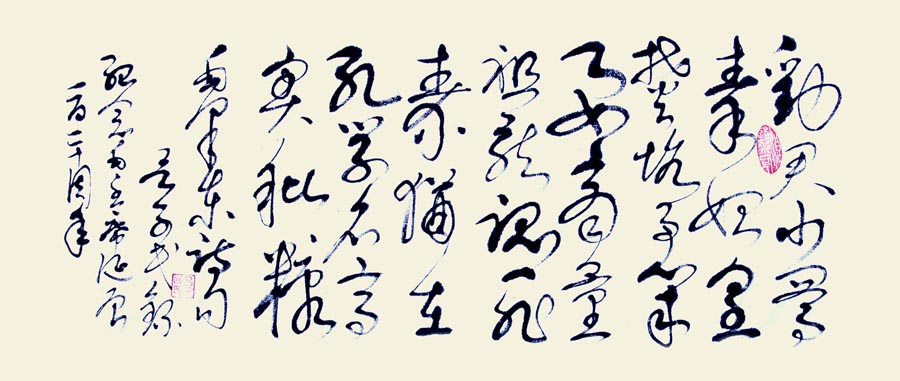 劝君少骂
秦始皇
焚坑事業
要商量
祖龙魂死
秦猶在
孔学名高
实秕糠
毛泽东诗句
纪念毛主席诞辰
一百二十周年